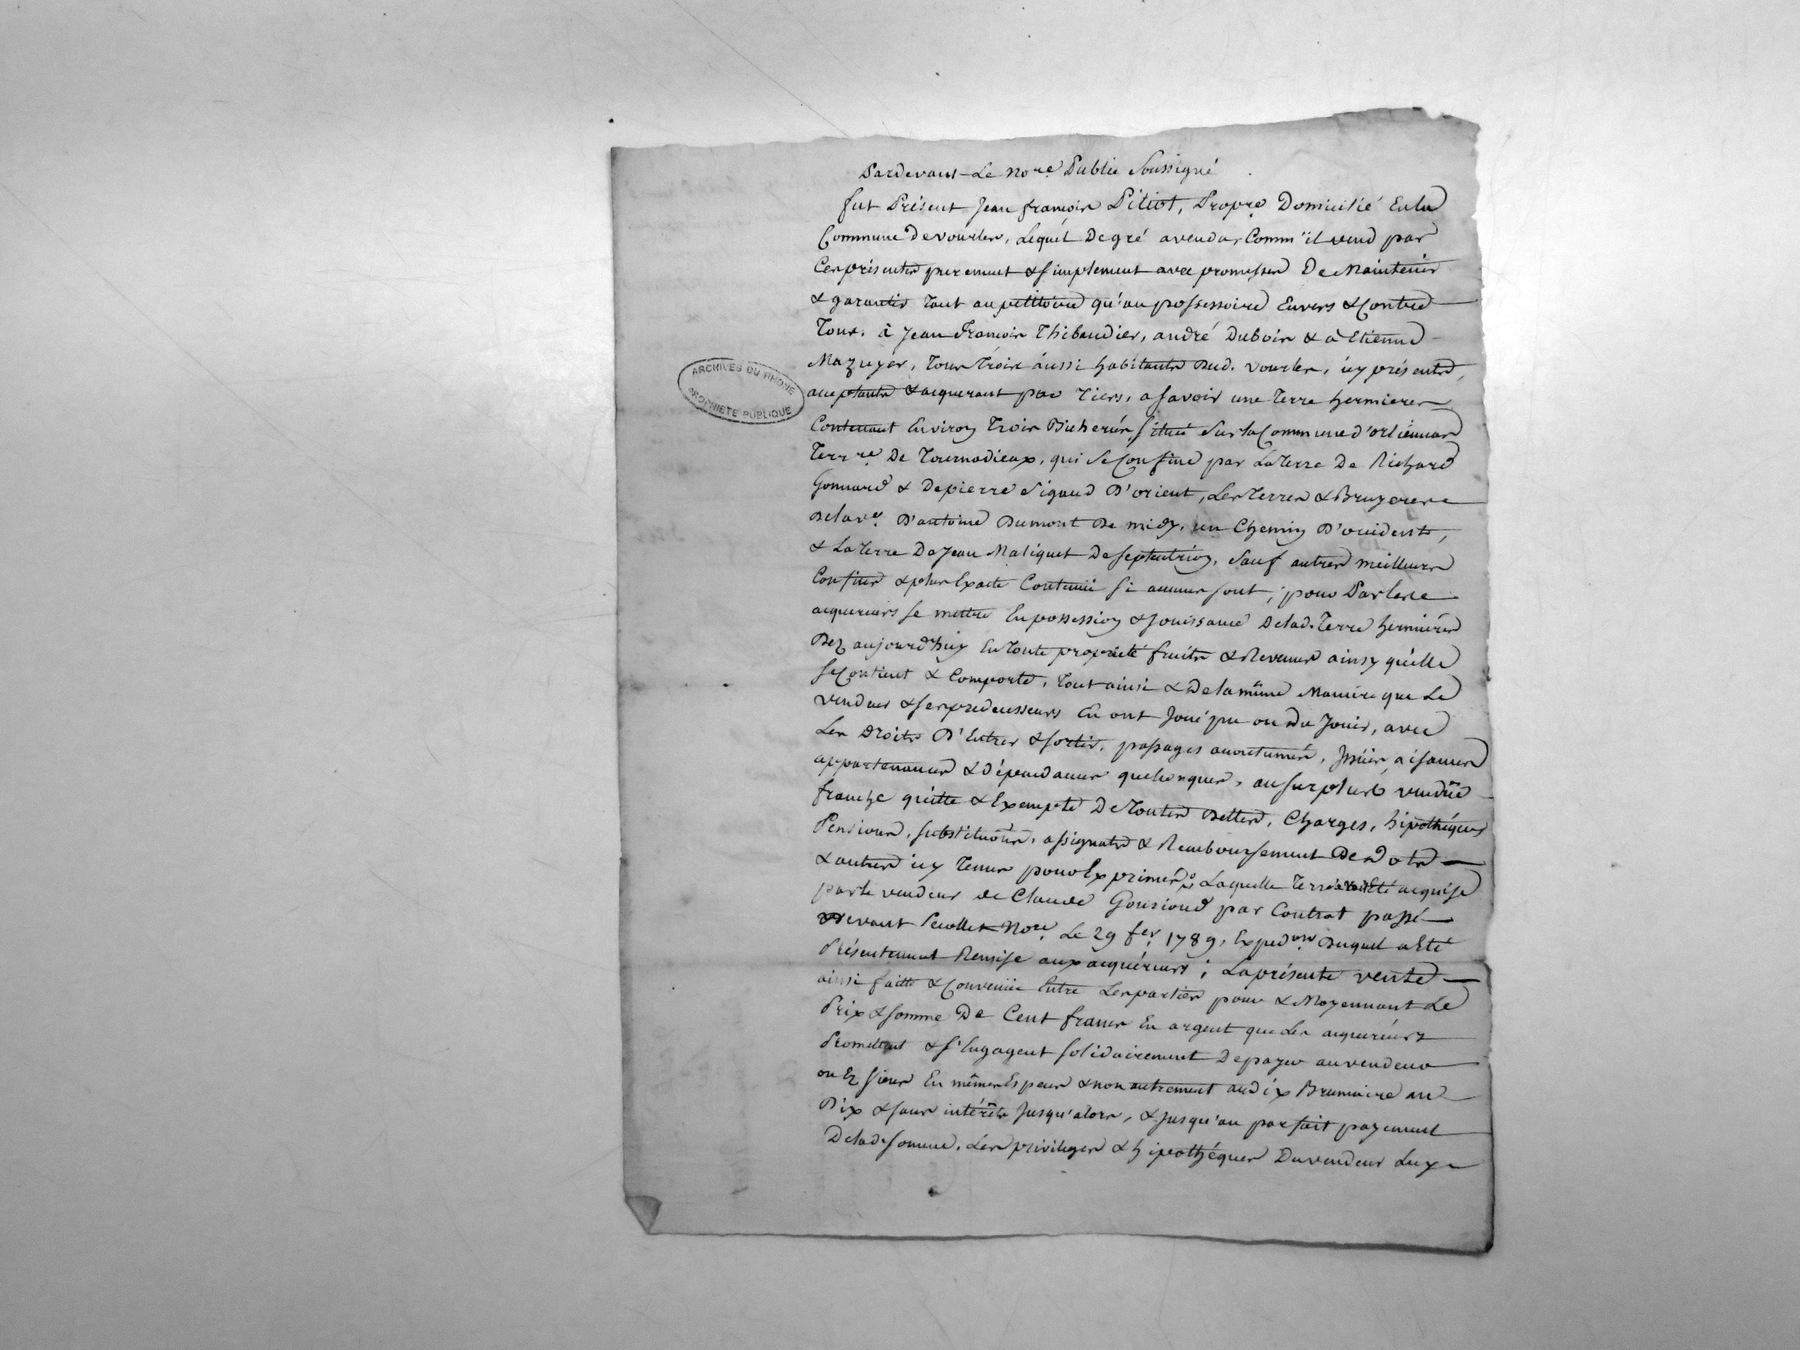 Pardevant Le No.re Public Soussigné
fut Présent Jean françois Pitiot, Propr.e Domicilié En la
Commune de vourles, Lequel De gré a vendu, Comm'il vend par
Ces présentes purement & simplement avec promesses De Maintenir
& garantir tout au petitoire qu'au possessoire Envers & Contre
Tous, à Jean François Thibaudier, andré Dubois & à Etienne
Mazuyer, Tous Trois aussi habitants Dud. vourles, icy présents,
acceptants & acquerant par Tiers, a savoir une Terre hermieres
Contenant Environ Trois Bicherées, située Sur la Commune d'orliennas
Terr.re De Tournadieax, qui se Confine par La Terre De Richard
Gonnard & De pierre Sigaud D'orient, Les Terres & Bruyeres
De la v.e D'antoine Dumont De midy, un Chemin D'occident,
& La Terre De Jean Maliquet De septentrion, Sauf autres meilleurs
Confins & plus Exacte Contenue si aucuns sont; pour Par les
acquereurs se mettre En possession & Jouissance De lad. Terre hermiéres
Dez aujourd'huy En Toute propriété fruits & Revenus ainsy qu'elle
se Contient & Comporte, tout ainsi & De la même Maniére que Le
vendeur & ses predecesseurs En ont Joui pu ou du Jouir, avec
Les Droits D'Entrer & sortir, passages accoutumés, Jssües, aisances
appartenances & dépendances quelconques, au surplus vendüe
franche quitte & Exempte De Toutes Dettes, Charges, hipothéques
Pensions, substitu.ons, assignats & Remboursement De Dots
& autres icy Tenus pour Exprimés; Laquelle Terre a Eté acquise
par le vendeur de Claude Gonsioud par Contrat passé
Devant No.re Le 29 fer. 1789, Exped.on Duquel a Eté
Présentement Remise aux acquéreurs; La présente vente
ainsi faitte & Convenüe Entre Les parties pour & Moyennant Le
Prix & somme De Cent francs En argent que Les acquéreurs
Promettent & s'Engagent solidairement De payer au vendeur
ou Ez siens En mêmes Especes & non autrement au dix Brumaire an
Dix & sans intérêts Jusqu'alors, & Jusqu'au parfait payement
De lad. somme, Les privileges & hipothéques Du vendeur Luy
ARCHIVES DU RHONE
PROPRIETE PUBLIQUE